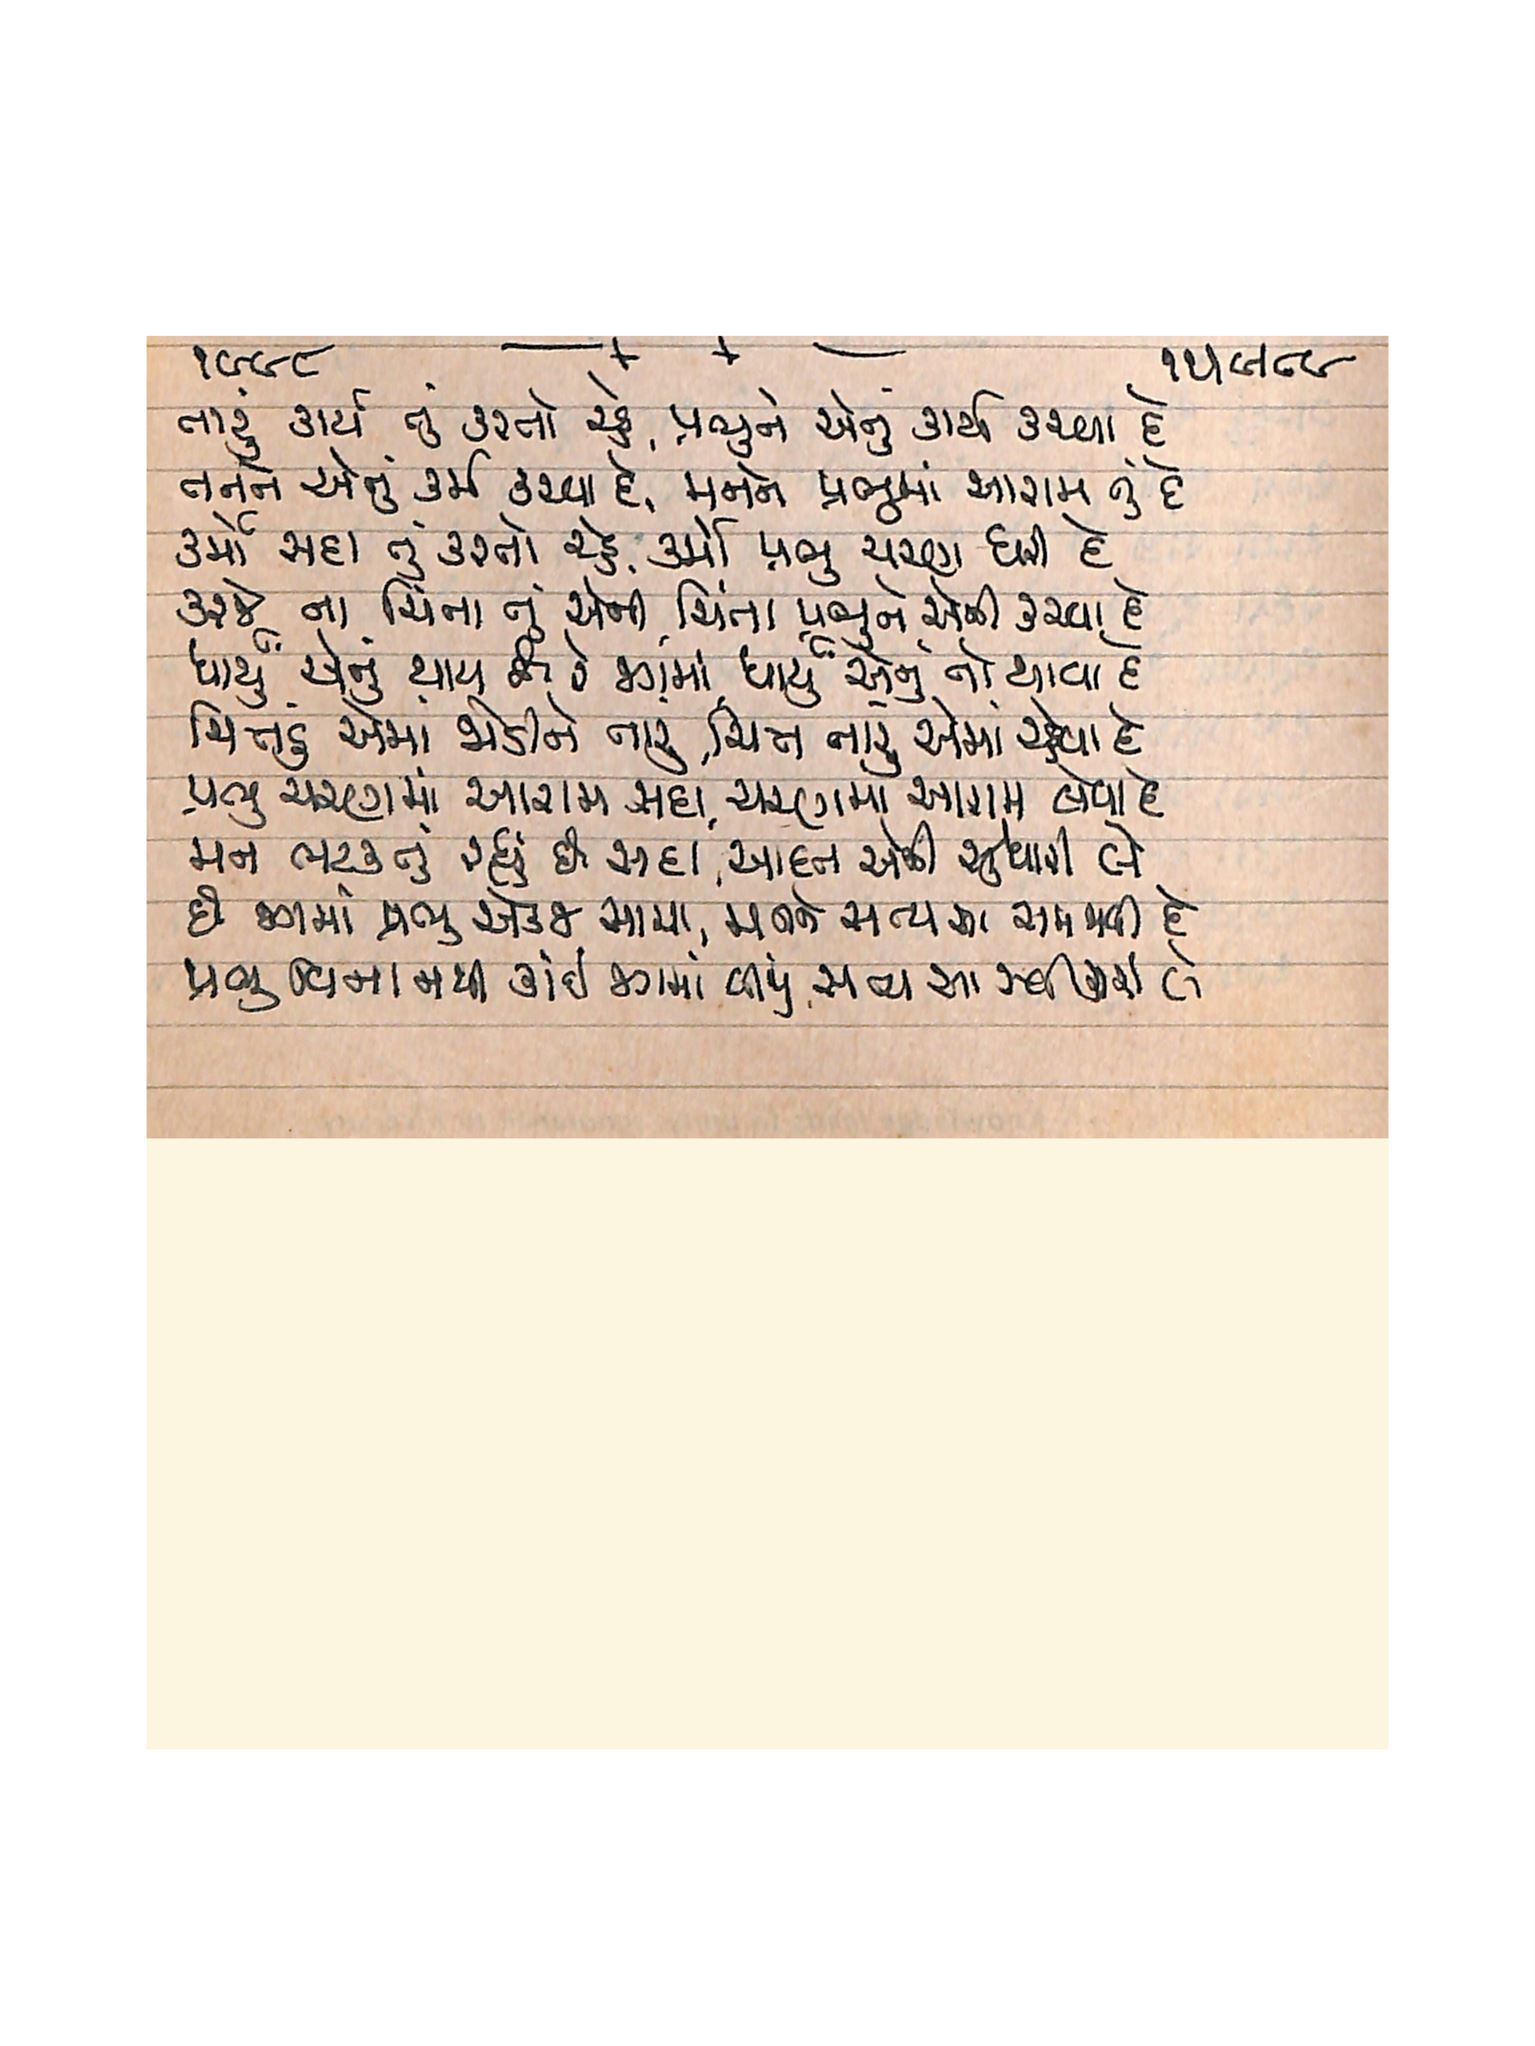 ૧૯૯૮ ૧૫।૯।૮૯
તારું કાર્ય તું કરતો રહે, પ્રભુને એનું કાર્ય કરવા દે
તનને એનું કર્મ કરવા દે, મનને પ્રભુમાં આરામ તું દે
કર્મો સદા તું કરતો રહે, કર્મો પ્રભુ ચરણે ધરી દે
કરજે ના ચિંતા તું એની, ચિંતા પ્રભુને એની કરવા દે
ધાર્યું એનું થાય છે રે જગમાં, ધાર્યું એનું તો થાવા દે
ચિત્તડું એમાં જોડીને તારું, ચિત્ત તારું એમાં રહેવા દે
પ્રભુ ચરણમાં આરામ સદા, ચરણમાં આરામ લેવા દે
મન ભટકતું રહ્યું છે સદા, આદત એની સુધારી લે
છે જગમાં પ્રભુ એકજ સાચા, મનને સત્ય આ સમજાવી દે
પ્રભુ વિના નથી કાંઈ જગમાં બીજું, સત્ય આ સ્વીકારી લે